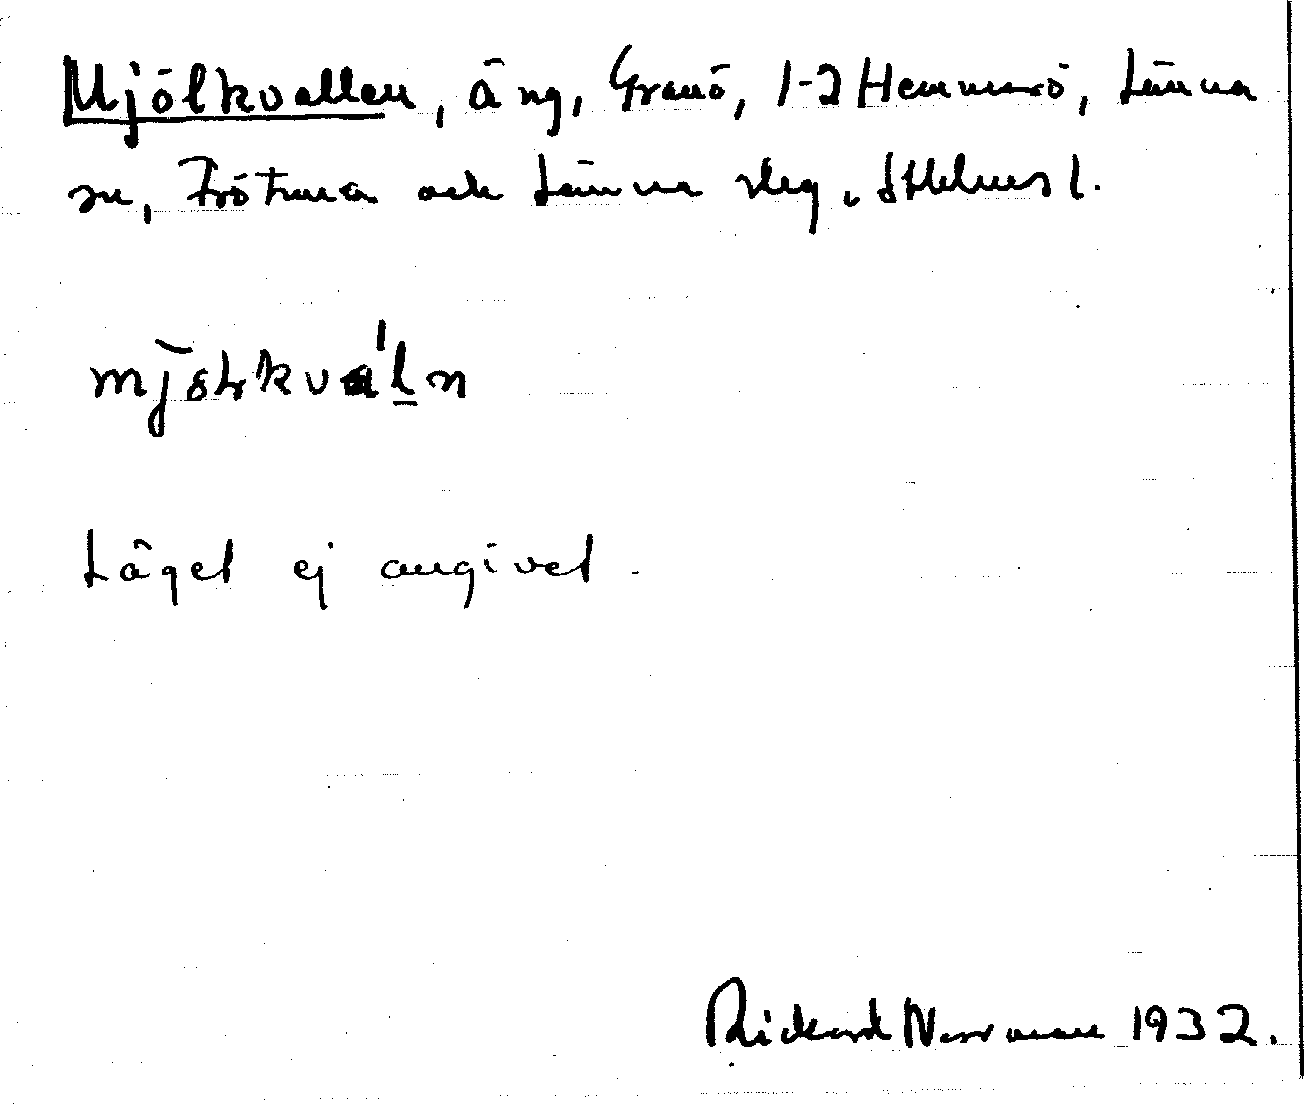 Mjölkvallen, äng, Granö, 1-2 Hemmarö, Länna
sn, Frötuna och Länna slg, Sthlms l.
mjölkvál̲n
Läget ej angivet.
Rickard Norrman 1932.